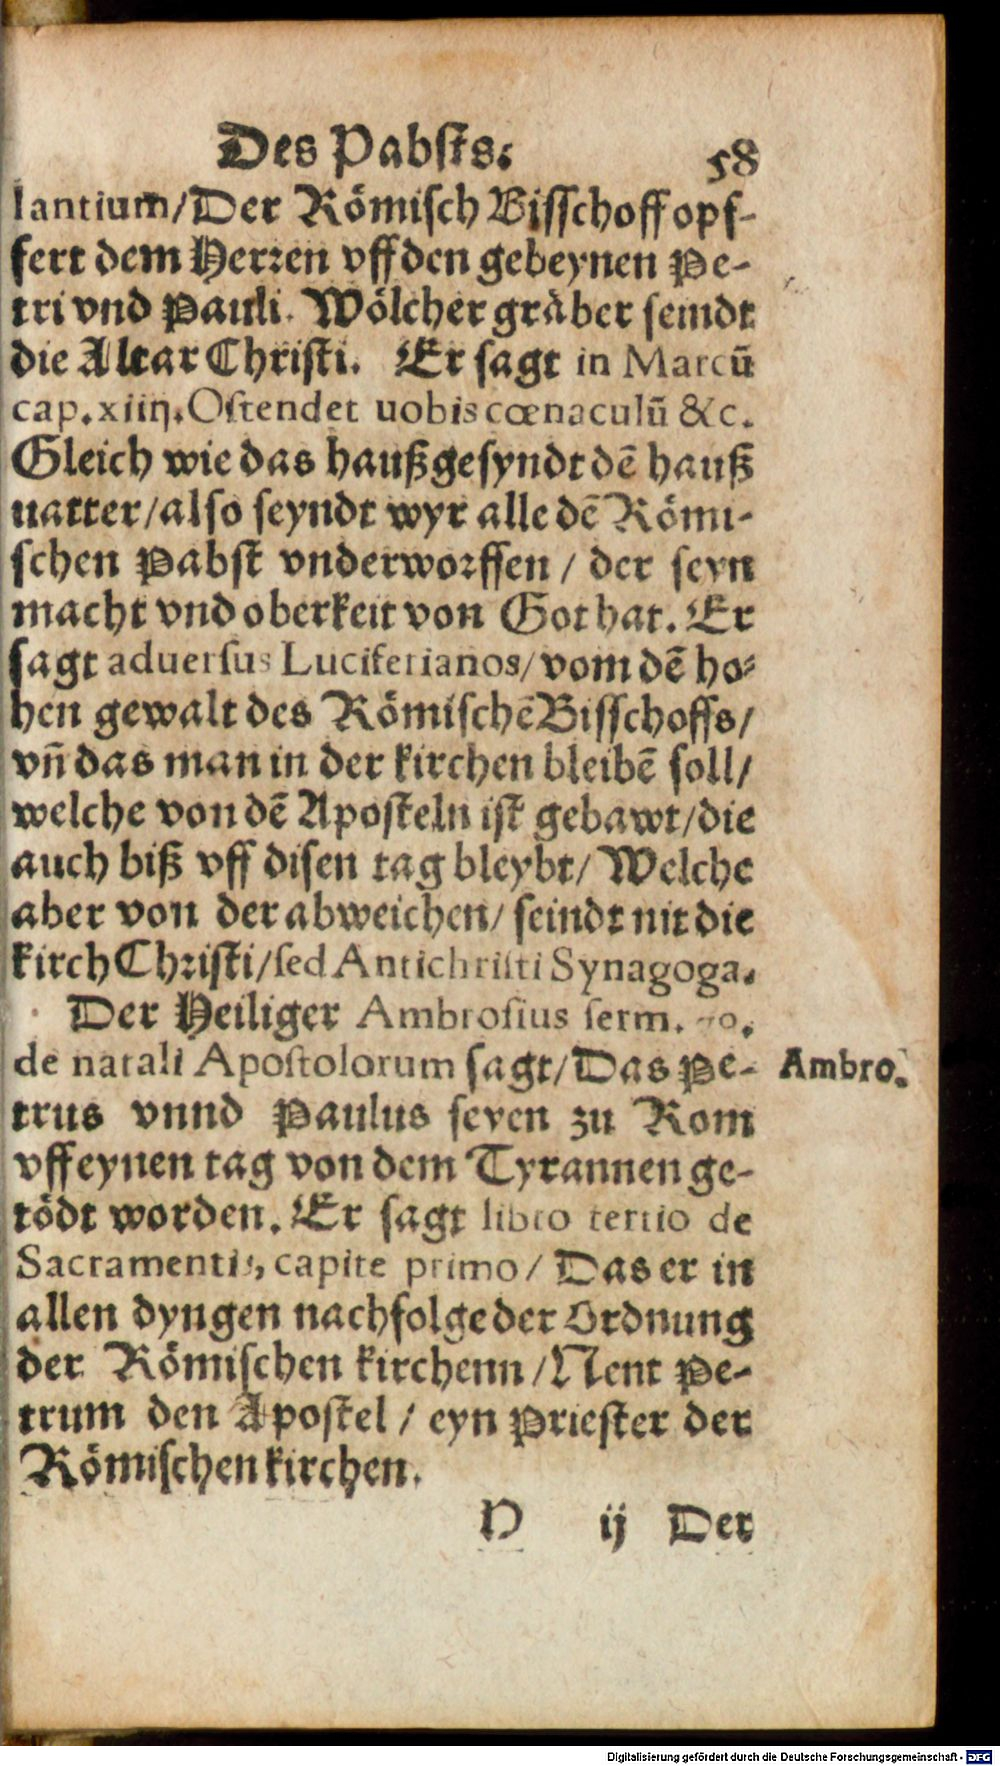 Des Pabsts. 58
lantium/Der Römisch Bisschoff opf-
fert dem Herren vff den gebeynen Pe-
tri vnd Pauli. Wölcher gräber seindt
die Altar Christi. Er sagt in Marcū
cap. xiiij. Ostendet uobis cœnaculū &c.
Gleich wie das haußgesyndt dē hauß
uatter/also seyndt wyr alle dē Römi-
schen Pabst vnderworffen / der seyn
macht vnd oberkeit von Got hat. Er
sagt aduersus Luciferianos/vom dē ho-
hen gewalt des Römischē Bisschoffs/
vñ das man in der kirchen bleibē soll/
welche von dē Aposteln ist gebawt/die
auch biß vff disen tag bleybt/ Welche
aber von der abweichen/ seindt nit die
kirch Christi/sed Antichristi Synagoga.
Der Heiliger Ambrosius serm.
de natali Apostolorum sagt/Das Pe- Ambro.
trus vnnd Paulus seyen zu Rom
vff eynen tag von dem Tyrannen ge-
tödt worden. Er sagt libro tertio de
Sacramentis, capite primo/ Das er in
allen dyngen nachfolge der Ordnung
der Römischen kirchenn/Nent Pe-
trum den Apostel / eyn Priester der
Römischen kirchen.
ij Der
Digitalisierung gefördert durch die Deutsche Forschungsgemeinschaft - DFG